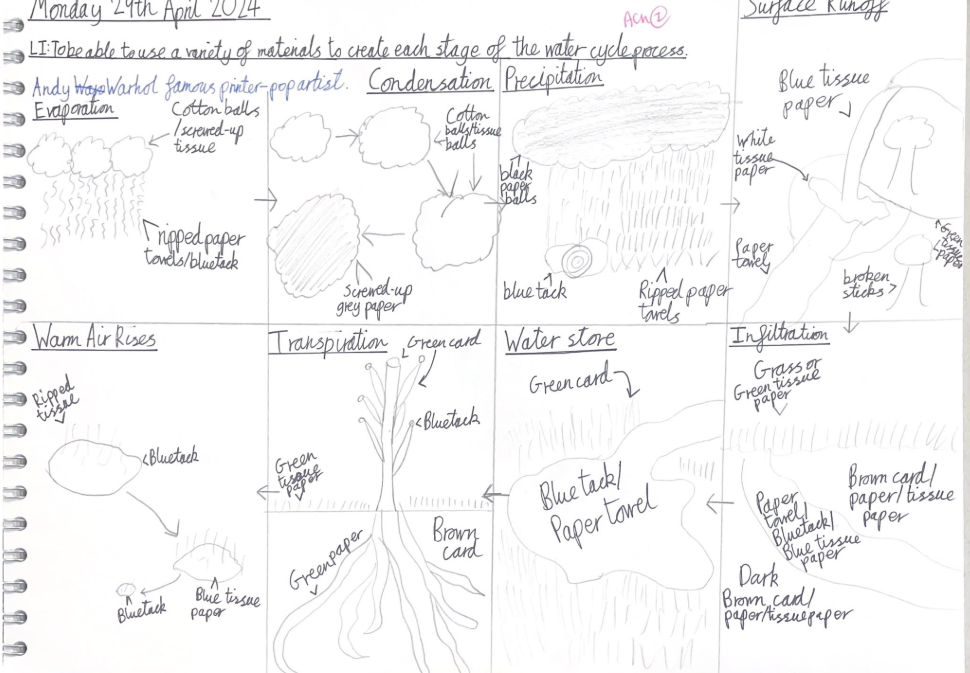 Monday 29th April 2024
Acn②
Surface Runoff
LI:To be able to use a variety of materials to create each stage of the water cycle process.
Andy Warhol famous printer-pop artist.
Evaporation
Cotton balls
/screwed-up
tissue
ripped paper
towels/bluetack
Condensation
Cotton
balls/tissue
balls
Screwed-up
grey paper
Precipitation
black
paper
balls
blue tack
Ripped paper
towels
Blue tissue
paper
White
tissue
paper
Paper
towel
broken
sticks
Green
tissue
paper
Warm Air Rises
Ripped
tissue
Bluetack
Bluetack
Blue tissue
paper
Transpiration
Green card
Bluetack
Green
tissue
paper
Green paper
Brown
card
Water store
Green card
Blue tack/
Paper towel
Infiltration
Grass or
Green tissue
paper
Brown card/
paper/tissue
paper
Paper
towel/
Bluetack/
Blue tissue
paper
Dark
Brown card/
paper/tissue paper